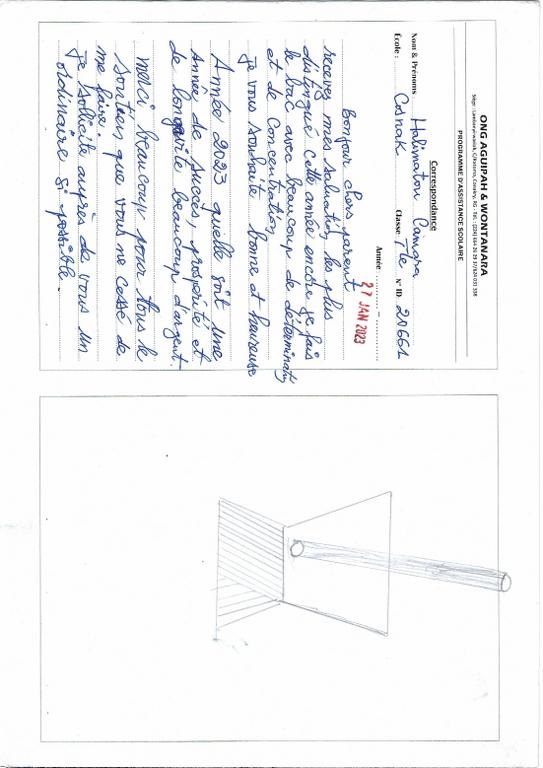 ONG AGUIPAH & WONTANARA
PROGRAMME D'ASSISTANCE SCOLAIRE
Correspondance
Nom & Prénoms Halimatou Camara
Ecole : Cosnak Classe: Tle N° ID 20661
Année : 27 JAN 2023
Bonjour chers parent
recevez mes salutation les plus
distingué cette année encore je fais
le bac avec beaucoup de déterminatio
et de concentration
je vous souhaite bonne et heureuse
Année 2023 quelle soit une
Année de succès, prospérité et
de longévité beaucoup d'argent.
merci beaucoup pour tous le
soutien que vous ne cessé de
me faire.
je sollicite auprès de vous un
ordinaire si possible.